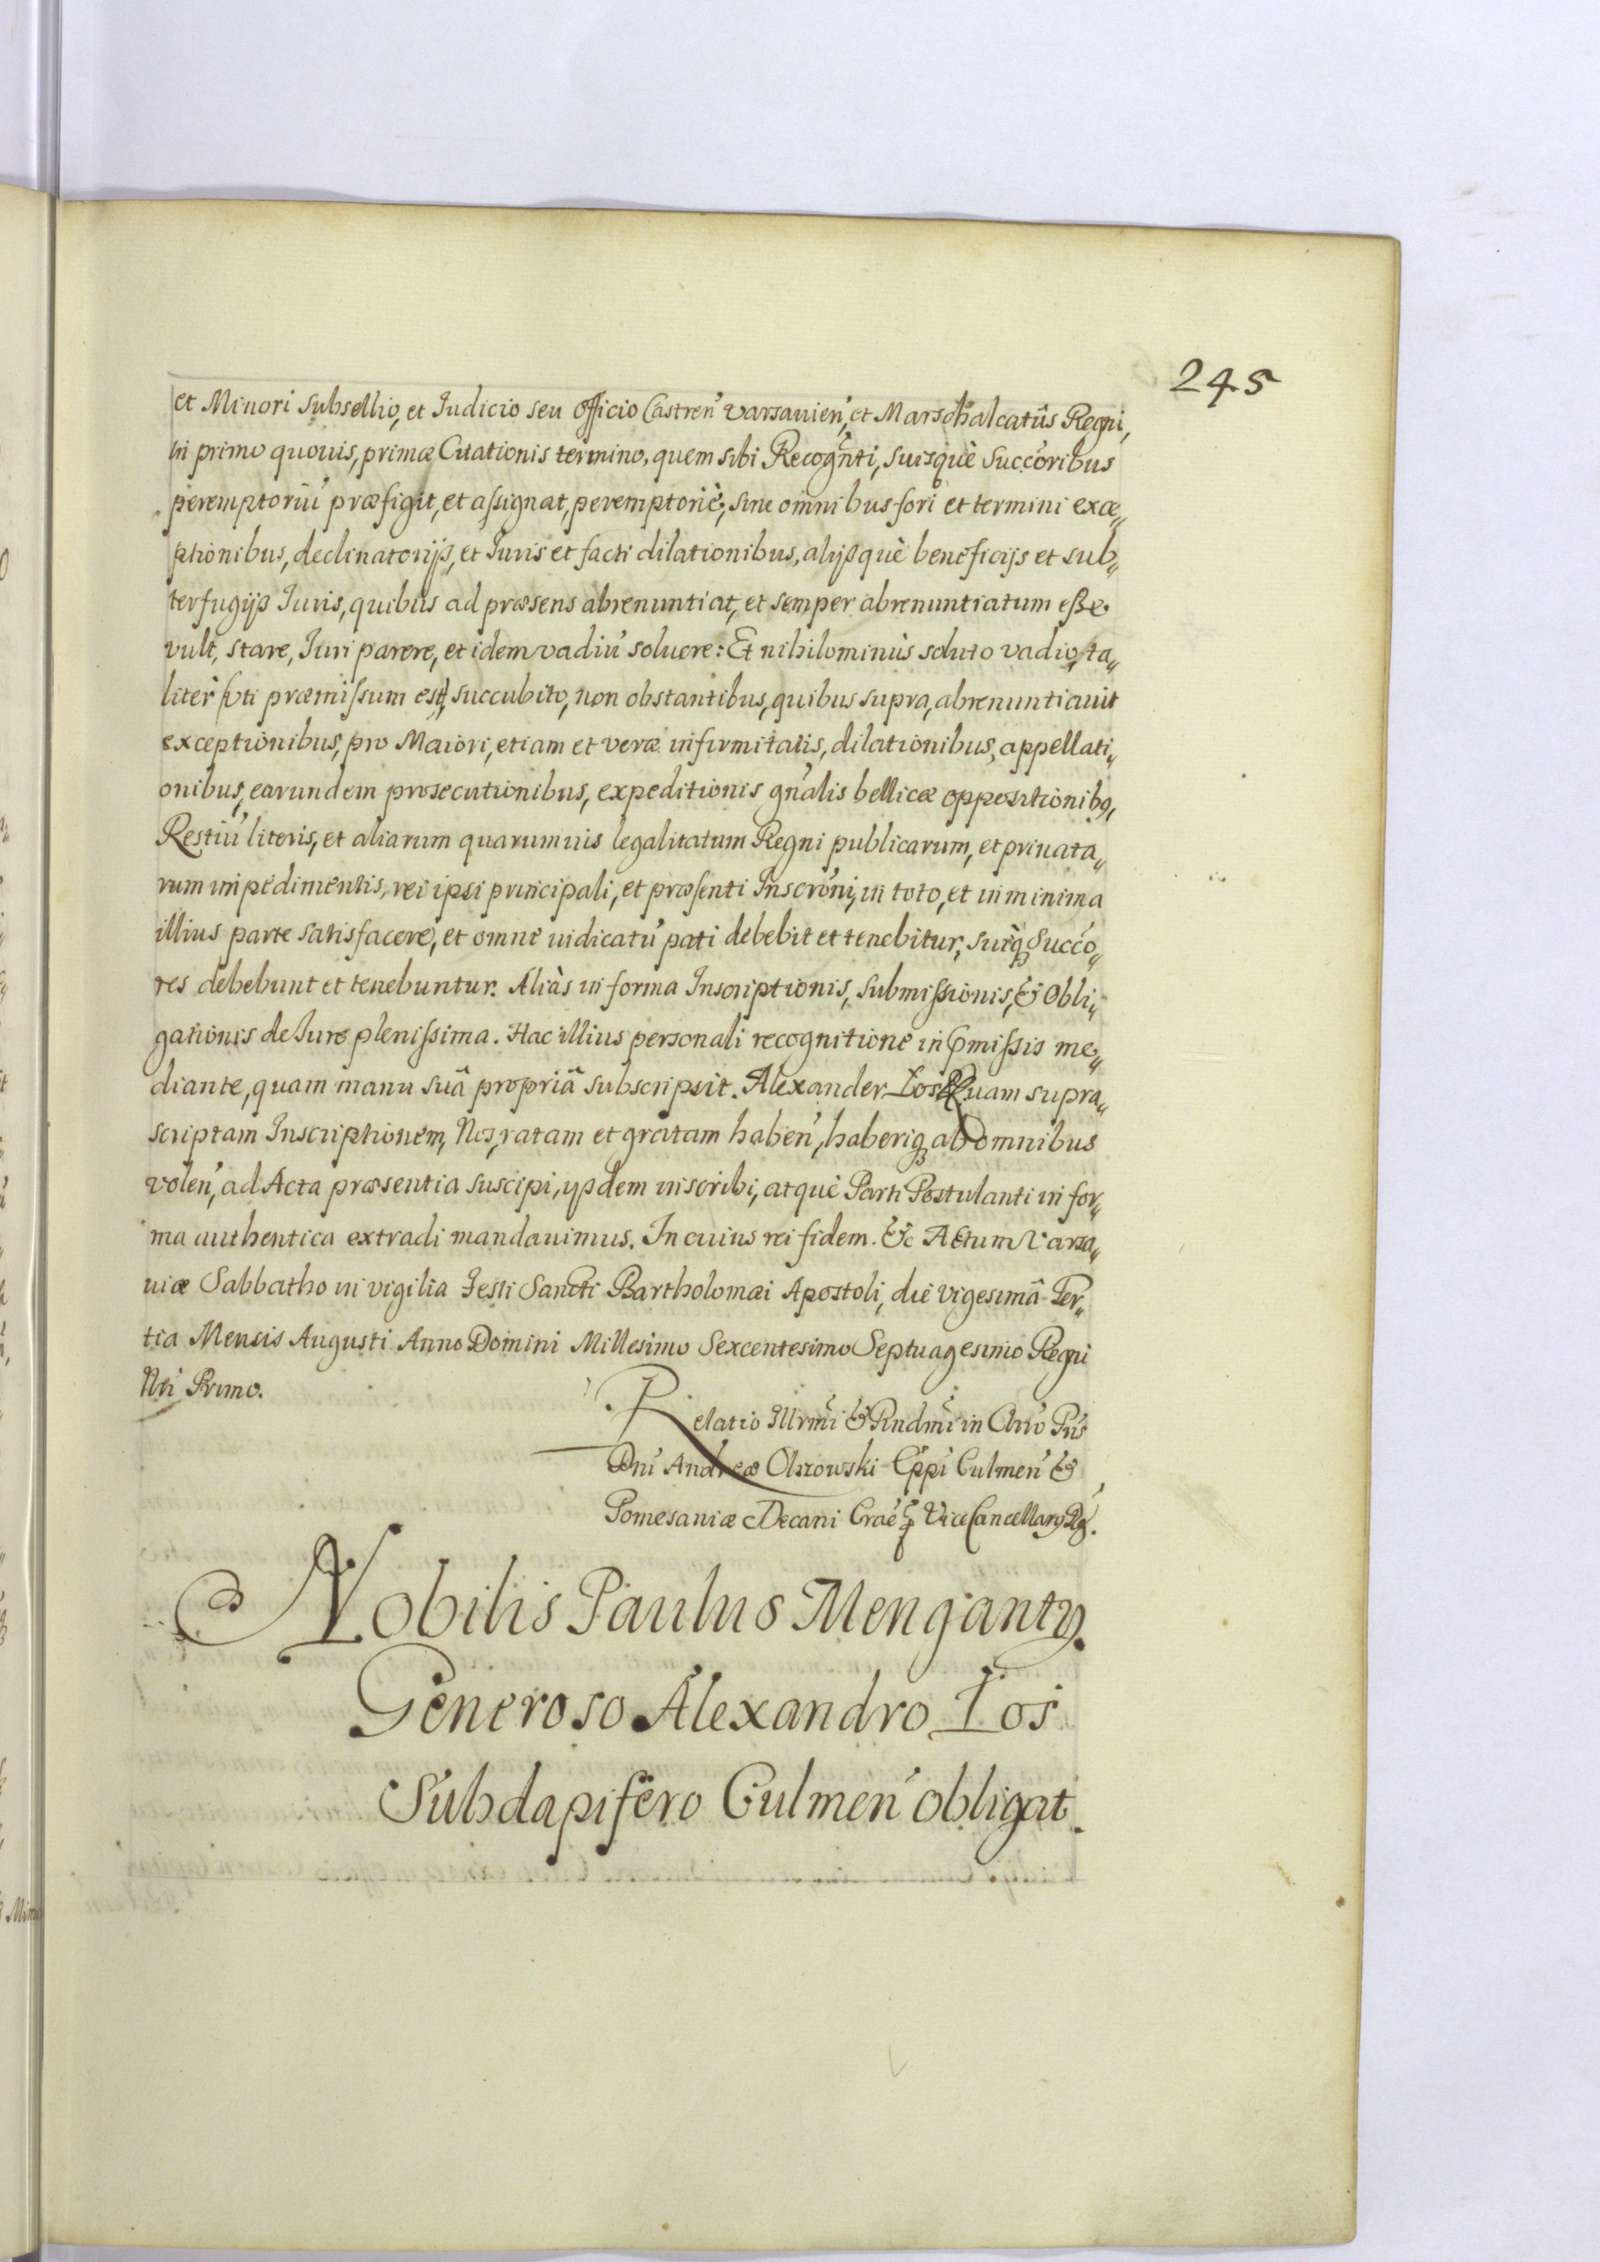 245
et Minori Subsellio, et Iudicio seu Officio Castren̄ Varsavien̄, et Marschalcatûs Regni,
in primo quovis, primæ Citationis termino, quem sibi Recogn̄ti, suisquè Succoribus
peremptoriū præfigit, et assignat, peremptoriè, sine omnibus fori et termini exce„
ptionibus, declinatorijs, et Iuris et facti dilationibus, alijsquè beneficijs et sub„
terfugijs Iuris, quibus ad præsens abrenuntiat, et semper abrenuntiatum esse
vult, stare, Iuri parere, et idem vadiū soluere: Et nihilominùs soluto vadio, ta„
litèr (uti præmissum est) succubito, non obstantibus, quibus supra, abrenuntiauit
exceptionibus, pro Maiori, etiam et veræ infirmitatis, dilationibus, appellati„
onibus, earundem prosecutionibus, expeditionis gn̄alis bellicæ oppositionibq,
Restiū literis, et aliarum quarumuis legalitatum Regni publicarum, et priuata„
rum impedimentis, rei ipsi principali, et præsenti Inscrōni, in toto, et in minima
illius parte satisfacere, et omne iudicatū pati debebit et tenebitur, suiq; Succo„
res debebunt et tenebuntur. Aliàs in forma Inscriptionis, Submissionis, & Obli„
gationis de Iure plenissima. Hac illius personali recognitione in p̄missis me„
diante, quam manu suâ propriâ subscripsit. Alexander Łoś Quam supra„
scriptam Inscriptionem, Nos, ratam et gratam haben̄, haberiq; ab omnibus
volen̄, ad Acta præsentia suscipi, ijsdem inscribi, atquè Parti Postulanti in for„
ma authentica extradi mandauimus. In cuius rei fidem. &c Actum Varsa„
uiæ Sabbatho in vigilia Festi Sancti Bartholomæi Apostoli, die vigesimâ Ter„
tia Mensis Augusti Anno Domini Millesimo Sexcentesimo Septuagesimo Regni
Nr̄i Primo.
Relatio Illrmī & Rndmī in Chrō Pr̄is
Dn̄i Andreæ Olszowski Epp̄i Culmen̄ &
Pomesaniæ Decani Crac̄ R. ViceCancellarij Rḡ.
Nobilis Paulus Menganty.
Generoso Alexandro Łoś
Subdapifero Culmen̄ obligat.